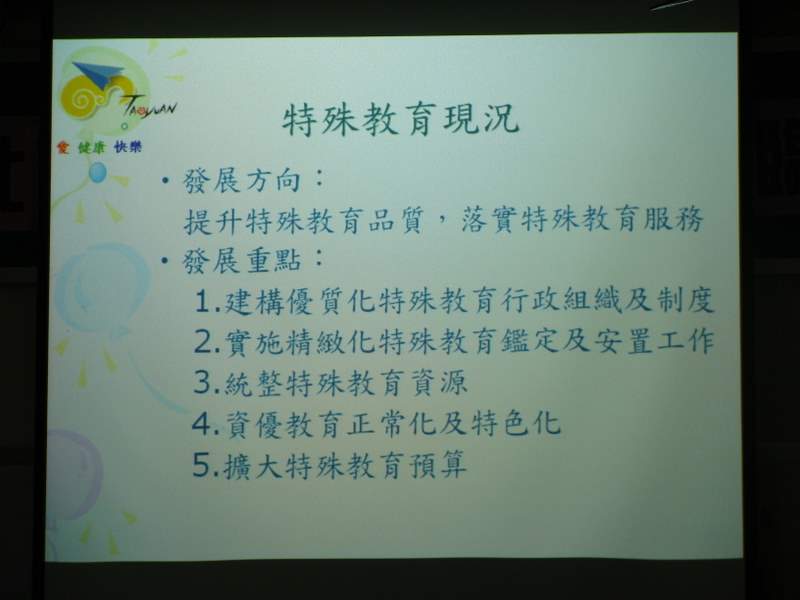 TAOYUAN
愛 健康 快樂
特殊教育現況
•發展方向：
提升特殊教育品質，落實特殊教育服務
•發展重點：
1.建構優質化特殊教育行政組織及制度
2.實施精緻化特殊教育鑑定及安置工作
3.統整特殊教育資源
4.資優教育正常化及特色化
5.擴大特殊教育預算